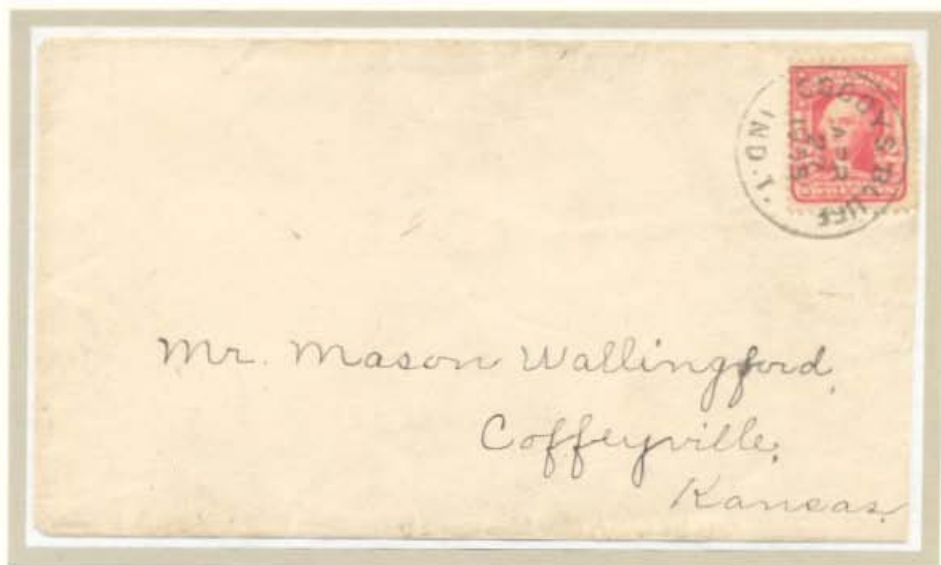 COODYS BLUFF
APR
1905
IND. T.
Mr. Mason Wallingford,
Coffeyville,
Kansas.